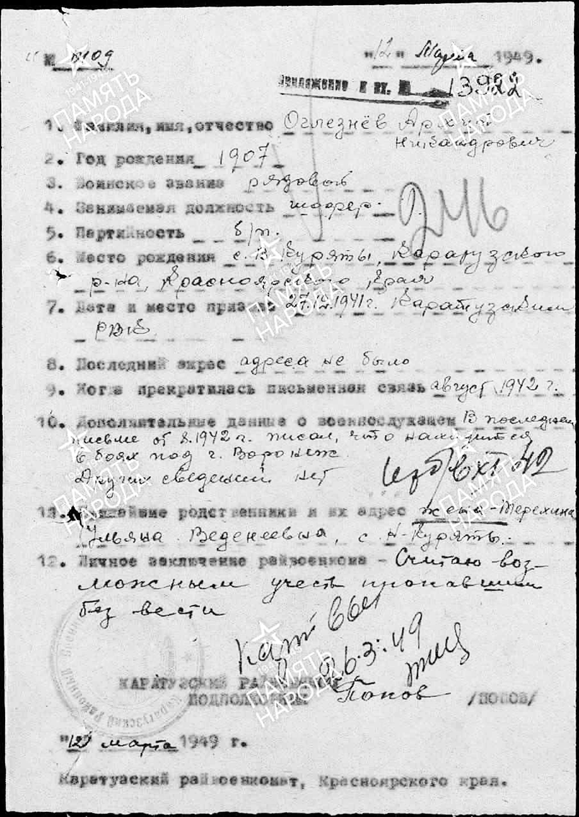 "12" Марта 1949.
13922
1. Фамилия, имя, отчество Оглезнёв
2. Год рождения 1907
3. Воинское звание рядовой
4. Занимаемая должность шофер.
5. Партийность б/п.
6. Место рождения с. В. Куряты, Каратузского
р-на, Красноярского края
7. Дата и место призыва 1941г. Каратузским
РВК
8. Последний адрес адреса не было
9. Когда прекратилась письменная связь август 1942 г.
10. Дополнительные данные о военнослужащем В последнем
письме от 8.1942 г. писал, что находится
в боях под г. Воронеж.
Других сведений нет
11. Ближайшие родственники и их адрес жена - Терехина
Ульяна Веденеевна, с. Н-Куряты.
12. Личное заключение райвоенкома - Считаю воз-
можным учесть пропавшим
без вести
26.3.49
КАРАТУЗСКИЙ РАЙВОЕНКОМ
ПОДПОЛКОВНИК Попов /ПОПОВ/
"12" марта 1949 г.
Каратузский райвоенкомат, Красноярского края.
ПАМЯТЬ НАРОДА